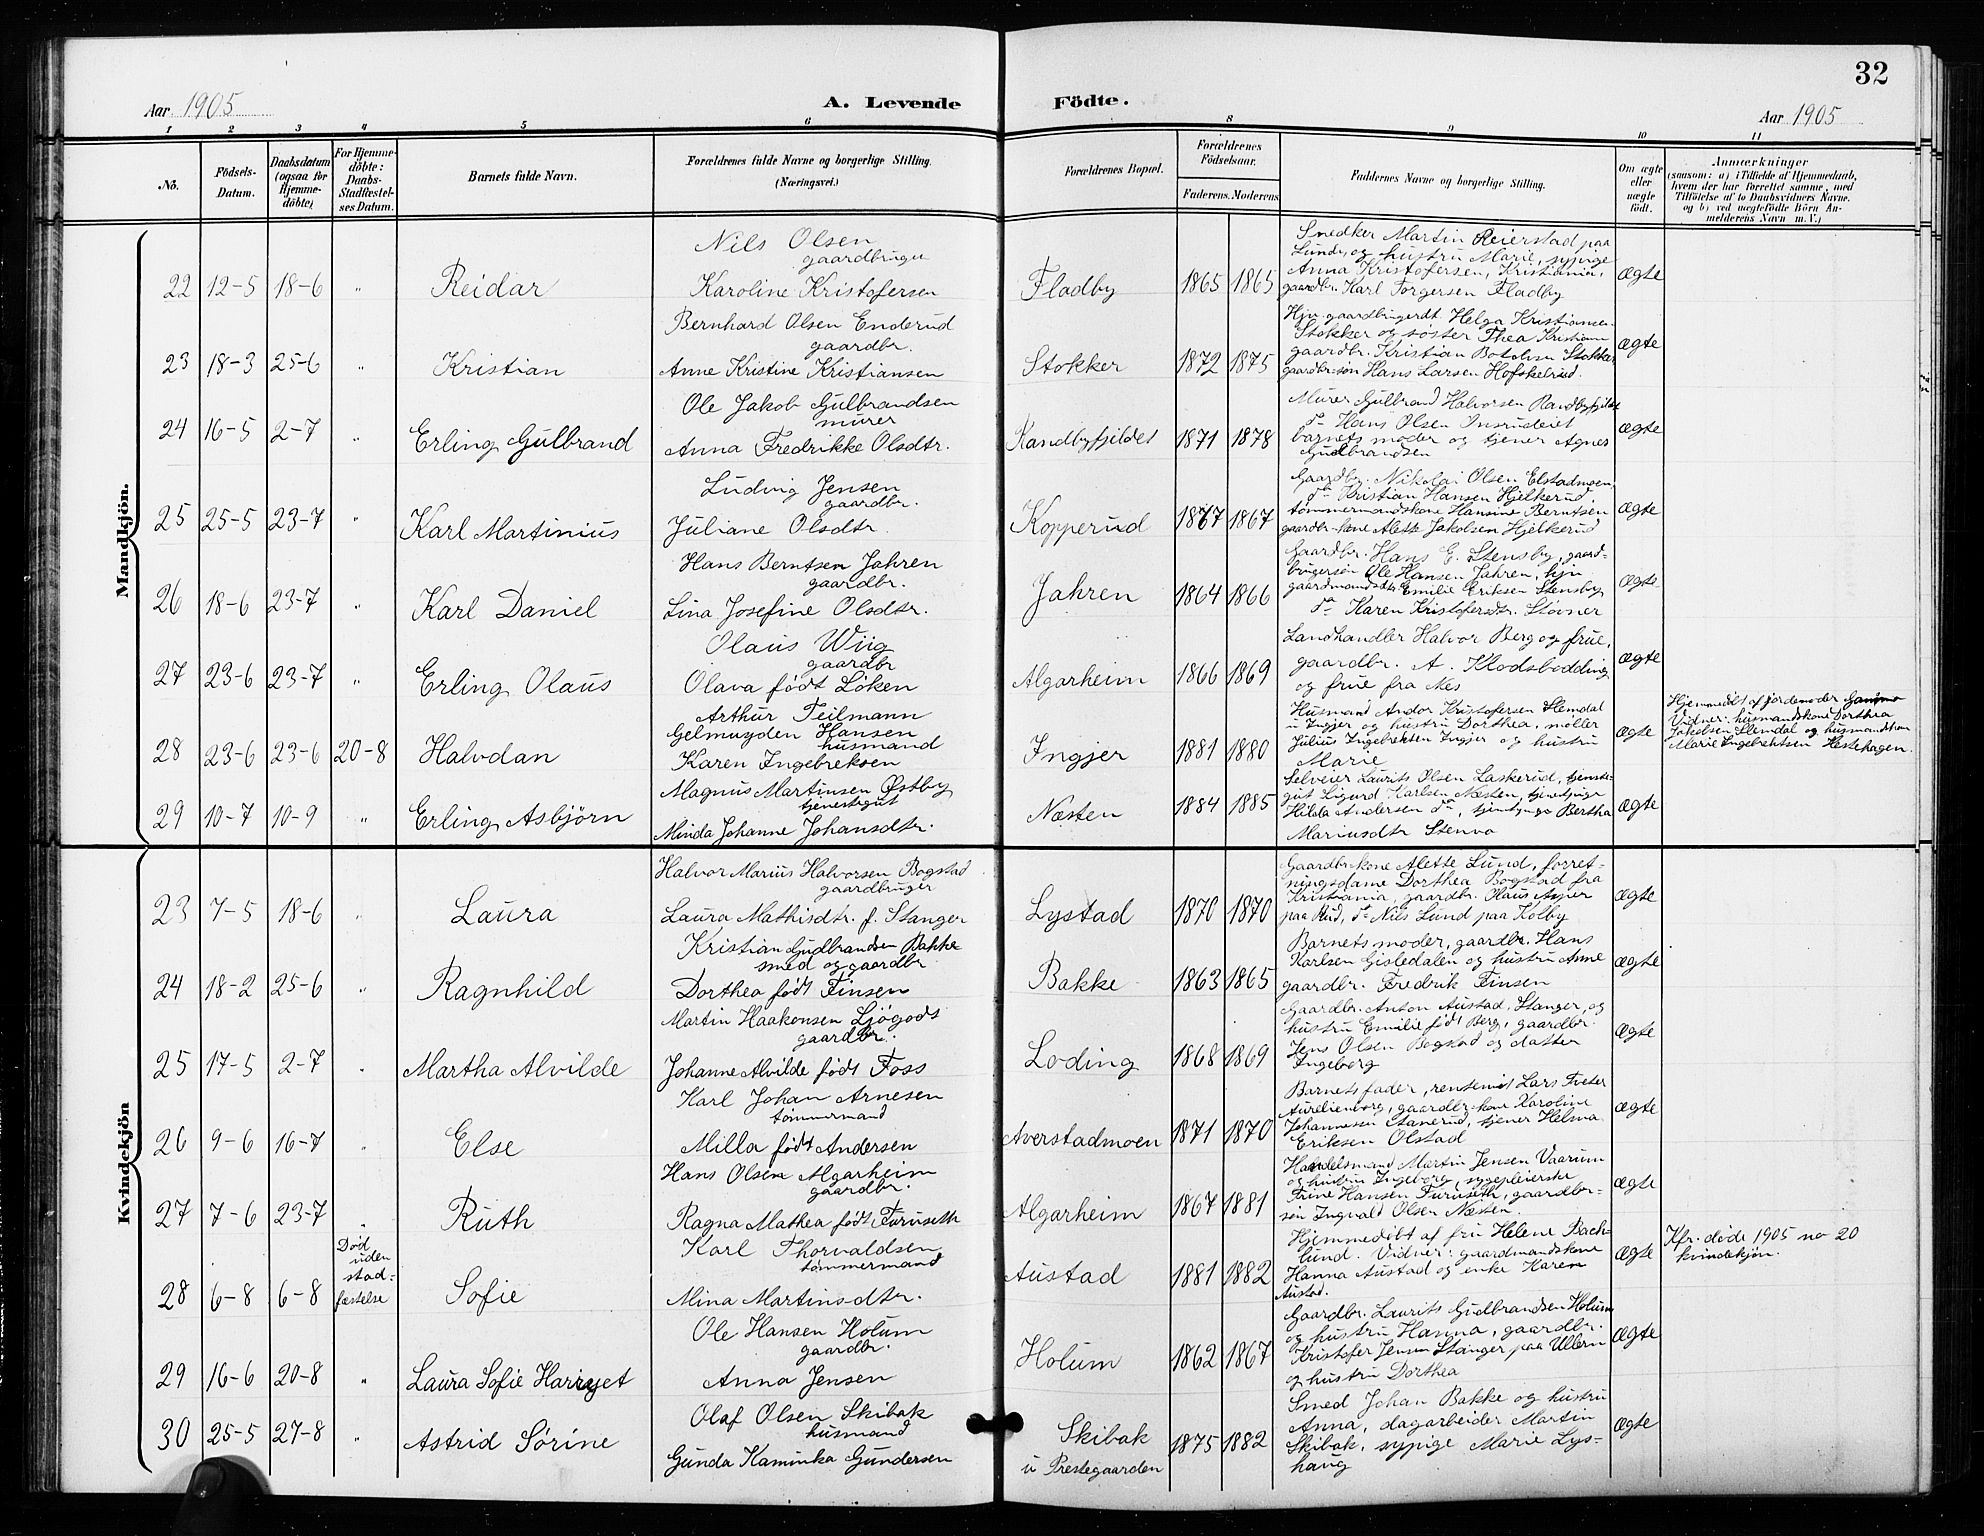 32
Aar 1905
A. Levende Födte.
Aar 1905
1 2 3 4 5 6 8 9 10 11
No.
Födsels-Datum.
Daabsdatum (ogsaa for Hjemme-döbte)
For Hjemme-döbte: Daabs-Stadfæstel-ses Datum.
Barnets fulde Navn.
Forældrenes fulde Navne og borgerlige Stilling. (Næringsvei.)
Forældrenes Bopæl.
Forældrenes Födselsaar.
Faderens. Moderens
Faddernes Navne og borgerlige Stilling.
Om ægte eller uægte født.
Anmærkninger
(saasom: a) i Tilfælde af Hjemmedaab,
hvem der har forrettet samme, med
Tilföielse af to Daabsvidners Navne.
og b) ved uægtefödte Börn An-
melderens Navn m. V.)
Mandkjön.
Nils Olsen
gaardbruger
22 12-5 18-6 " Reidar Karoline Kristofersen Fladby 1865 1865
Snedker Martin Reierstad paa
Lunde, og hustru Marie, sypige
Anna Kristofersen, Kristiania,
gaardbr. Karl Torgersen Fladby
Ægte
Bernhard Olsen Enderud
gaardbr.
23 18-3 25-6 " Kristian Anne Kristine Kristiansen Stokker 1872 1875
Hjv. gaardbrugerdt Helga Kristiansen
Stokker og søster Thea Kristian
gaardbr. Kristian Botolvsen Stokker
gaardbr-søn Hans Larsen Hofskelrud.
Ægte
Ole Jakob Gulbrandsen
murer
24 16-5 2-7 " Erling Gulbrand Anna Fredrikke Olsdtr. Randbyfjildet 1871 1878
Murer Gulbrand Halvorsen Randbyfjildet
da Hans Olsen Insrudeiet
barnets moder og tjener Agnes
Gulbrandsen
Ægte
Ludvig Jensen
gaardbr.
25 25-5 23-7 " Karl Martinius Juliane Olsdtr. Kopperud 1867 1867
Gaardbr. Nikolai Olsen Elstadmoen,
da Kristian Hansen Hjelkerud,
tömmermandskone Hansine Berntsen
gaardbr-kone Alette Jakobsen Hjelkerud
Ægte
Hans Berntsen Jahren
gaardbr.
26 18-6 23-7 " Karl Daniel Lina Josefine Olsdtr. Jahren 1864 1866
Gaardbr. Hans E. Stensby, gaard-
brugersøn Ole Hansen Jahren, hjv
gaardmandsdtr Emilie Eriksen Stensby
da Karen Kristofersdtr. Støvner
Ægte
Olaus Wiig
gaardbr
27 23-6 23-7 " Erling Olaus Olava født Löken Algarheim 1866 1869
Landhandler Halvor Berg og frue,
gaardbr. A. Klodsbødding
og frue fra Nes
Ægte
Arthur Teilmann
Gelmuyden Hansen
husmand
28 23-6 23-6 20-8 Halvdan Karen Ingebreksen Ingjer 1881 1880
Husmand Andor Kristofersen Slemdal
u Ingjer og hustru Dorthea, møller
Julius Ingebrektsen Ingjer og hustru
Marie
Ægte
Hjemmedöbt af jordemoder
Vidner: husmandskone Dorthea
Jakobsen Slemdal og husmandskon
Marie Ingebrektsen Hestehagen.
Magnus Martinsen Østby
tjenestegut
29 10-7 10-9 " Erling Asbjörn Minda Johanne Johansdtr. Næsten 1884 1885
Selveier Laurits Olsen Laskerud, tjeneste-
gut Sigurd Karlsen Næsten, tjenestepige
Hilda Andersen da, tjenestepige Bertha
Mariusdtr Stenva
Ægte
Kvindekjön
Halvor Marius Halvorsen Bogstad
gaardbruger
23 7-5 18-6 " Laura Laura Mathisdtr. f. Stanger Lystad 1870 1870
Gaardbr.kone Alette Lund, forret-
ningsdame Dorthea Bogstad fra
Kristiania, gaardbr. Olaus Asper
paa Hud, da Nils Lund paa Kolby
Ægte
Kristian Gudbrandsen Bakke
smed og gaardbr
24 18-2 25-6 " Ragnhild Dorthea født Finsen Bakke 1863 1865
Barnets moder, gaardbr. Hans
Karlsen Gisledalen og hustru Anne
gaardbr. Fredrik Finsen
Ægte
Martin Haakonsen Ljøgods
gaardbr.
25 17-5 2-7 " Martha Alvilde Johanne Alvilde født Foss Loding 1868 1869
Gaardbr. Anton Austad, Stanger, og
hustru Emilie født Berg, gaardbr
Jens Olsen Bogstad og datter
Ingeborg
Ægte
Karl Johan Arnesen
tømmermand
26 9-6 16-7 " Else Milla født Andersen Averstadmoen 1871 1870
Barnets fader, rentenist Lars Tveter
Aurelienborg, gaardbr-kone Karoline
Johannessen Stanerud, tjener Helma
Eriksen Olstad
Ægte
Hans Olsen Algarheim
gaardbr.
27 7-6 23-7 " Ruth Ragna Mathea født Furuseth Algarheim 1867 1881
Handelsmand Martin Jensen Vaarum
og hustru Ingeborg, sygepleierske
Trine Hansen Furuseth, gaardbr-
søn Ingvald Olsen Næsten.
Ægte
Karl Thorvaldsen
tømmermand
28 6-8 6-8 Död uden stad-fæstelse Sofie Mina Martinsdtr. Austad 1881 1882
Hjemmedöbt af fru Helene Bach-
lund. Vidner: gaardmandskone
Hanna Austad og enke Karen
Austad.
Ægte
Kfr. döde 1905 no 20
kvindekjön.
Ole Hansen Holum
gaardbr.
29 16-6 20-8 " Laura Sofie Harriyet Anna Jensen Holum 1862 1867
Gaardbr. Laurits Gudbrandsen Holum
og hustru Hanna, gaardbr.
Kristofer Jensen Stanger paa Ullern
og hustru Dorthea
Ægte
Olaf Olsen Skibak
husmand
30 25-5 27-8 " Astrid Sörine Gunda Kaminka Gundersen Skibak
u Prestegaarden 1875 1882
Smed Johan Bakke og hustru
Anna, dagarbeider Martin
Skibak, sypige Marie Lys-
haug
Ægte